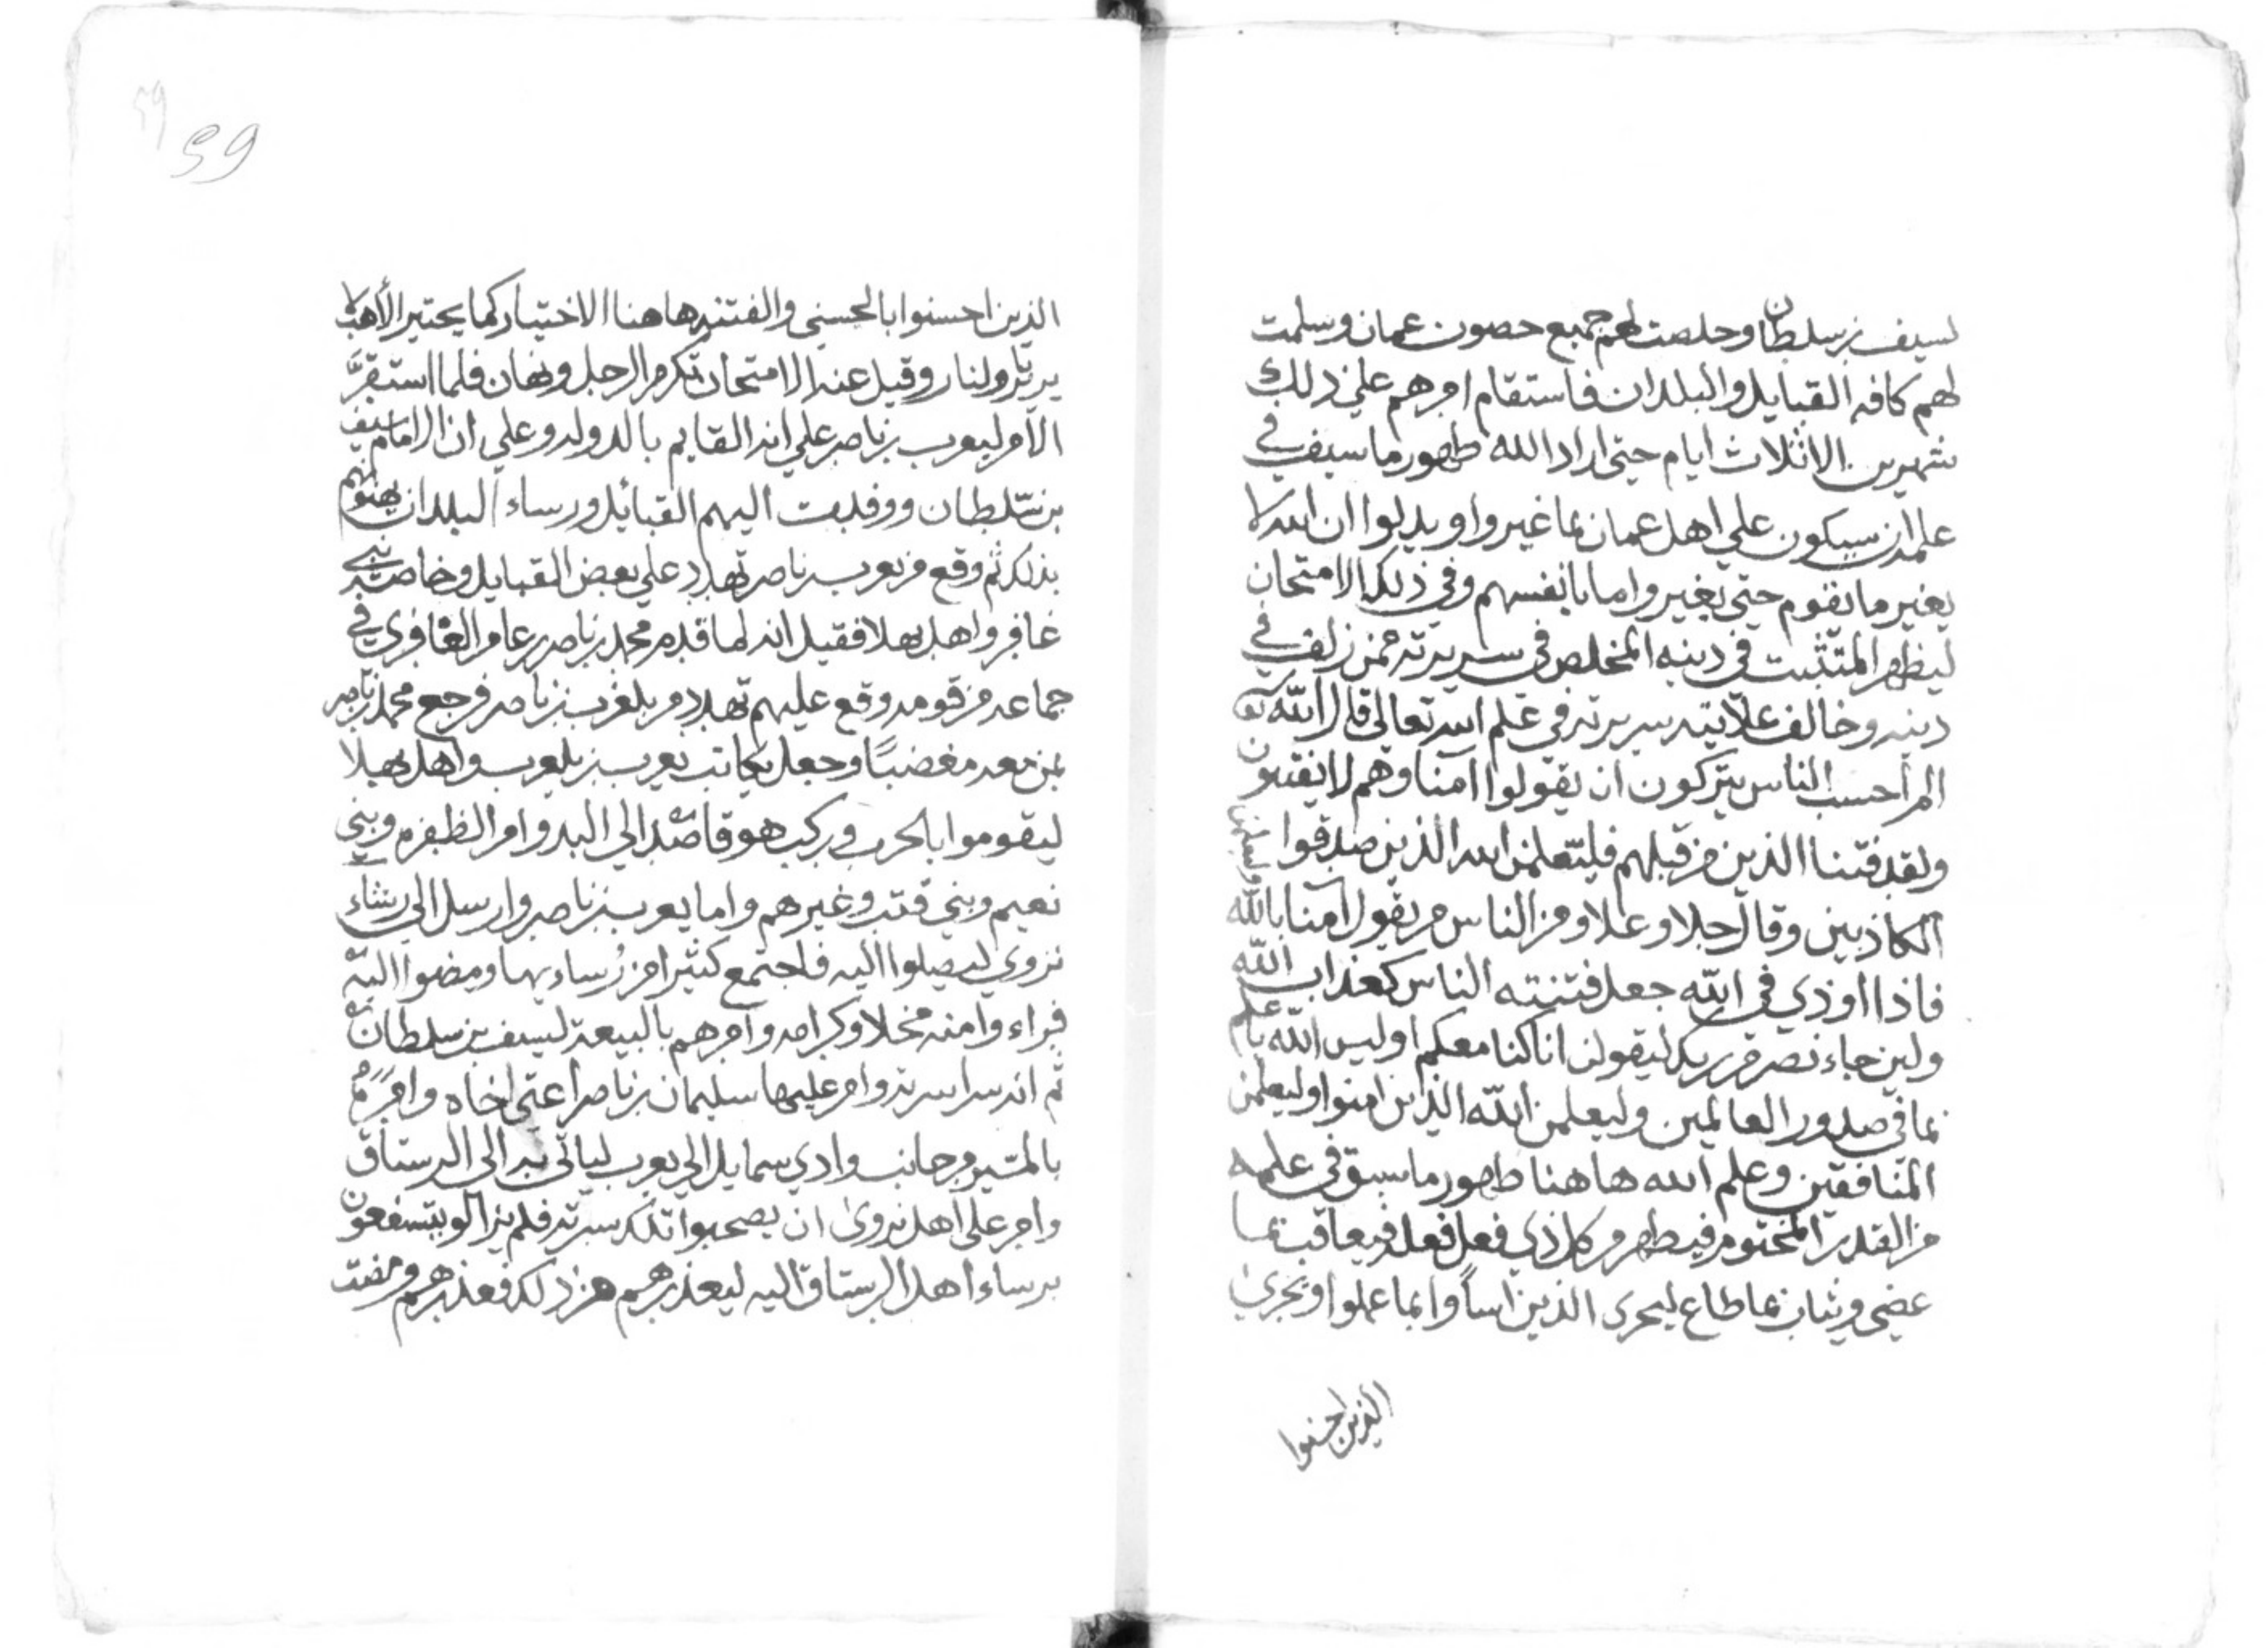 لسيف بن سلطان وخلصت لهم جميع حصون عمان وسلمت
لهم كافه القبايل والبلدان فاستقام امرهم علي ذلك
شهرين الا ثلاث ايام حتي اراد الله ظهور ما سبق في
علمه انه سيكون علي اهل عمان بما غيروا وبدلوا ان الله لا
يغير ما بقوم حتي يغيروا ما بانفسهم وفي ذلك الامتحان
ليظهر المتثبت في دينه المخلص في سريرته ممن زلف في
دينه وخالف علانيته سريرته في علم الله تعالي قال الله تع
الم أحسب الناس ان يتركون ان يقولوا آمنا وهم لا يفتنون
ولقد فتنا الذين من قبلهم فليعلمن الله الذين صدقوا وليعلمن
الكاذبين وقال جلا وعلا ومن الناس من يقول آمنا بالله
فاذا اوذي في الله جعل فتنته الناس كعذاب الله
ولين جاء نصر من ربك ليقولن انا كنا معكم اوليس الله باعلم
بما في صدور العالمين وليعلمن الله الذين امنوا وليعلمن
المنافقين وعلم الله هاهنا ظهور ما سبق في علمه
من القدر المختوم فيظهر من كل ذي فعل فعله فيعاقب بما
عصي ويثاب بما طاع ليجزى الذين اساوا بما عملوا ويجزي
الذين احسنوا
59
الذين احسنوا بالحسني والفتنه هاهنا الاختبار كما يختبر الأهب
يرتر ولنار وقيل عند الامتحان تكرم الرجل ونهان فلما استقرّ
الأمر ليعرب بن ناصر علي انه القايم بالدوله وعلي ان الامام سيف
بن سلطان ووفدت اليهم القبائل ورساء البلدان يهنوهم
بذلك ثم وقع من يعرب بن ناصر تهدد علي بعض القبايل وخاصة بني
غافر واهل بهلا فقيل انه لما قدم محمد بن ناصر بن عامر الغافري في
جماعه من قومه وقع عليهم تهدد من بلعرب بن ناصر فرجع محمد بن ناصر
بمن معه مغضبًا وجعل يكاتب يعرب بن بلعرب واهل بهلا
ليقوموا بالحرب وركب هو قاصد الي البدو امر الظفره وبني
نعيم وبني قتب وغيرهم واما يعرب بن ناصر وارسل الي رشاء
نزوي ليصلوا اليه فاجتمع كثيرا من رُساءيها ومضوا اليه
فراءوا منه محلا وكرامه وامرهم بالبيعة لسيف بن سلطان
ثم انه سرا سريه وامر عليها سليمان بن ناصر أعني اخاه وامرهُ
بالمسير من جانب وادي سمايل الي يعرب لياتي به الى الرستاق
وامر على اهل نزوى ان يصحبوا تلك سريه فلم يزالو يتسفعون
برساء اهل الرستاق اليه ليعذرهم من ذلك فعذرهم ومضت